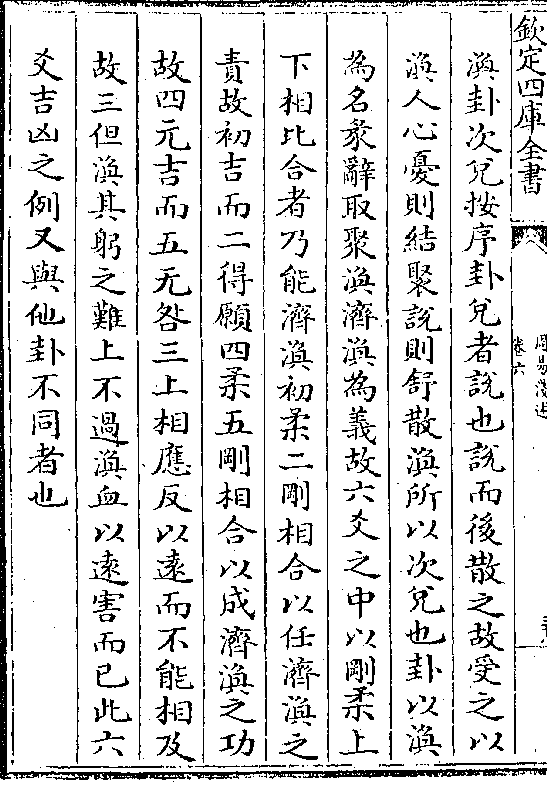 欽定四庫全書
周易淺述
卷六
渙卦次兌按序卦兌者說也說而後散之故受之以
渙人心憂則結聚說則舒散渙所以次兌也卦以渙
為名彖辭取聚渙濟渙為義故六爻之中以剛柔上
下相比合者乃能濟渙初柔二剛相合以任濟渙之
責故初吉而二得願四柔五剛相合以成濟渙之功
故四元吉而五无咎三上相應反以遠而不能相及
故三但渙其躬之難上不過渙血以遠害而已此六
爻吉凶之例又與他卦不同者也